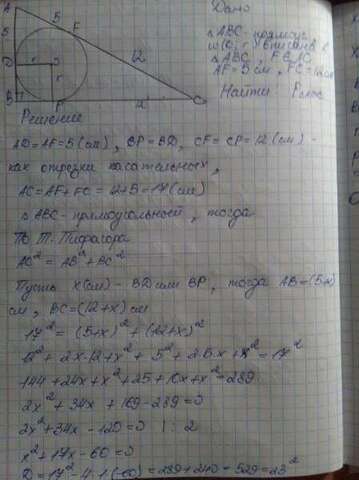 A
5
5
F
12
D
r
r
B
P
12
C
Дано
△ABC - прямоуг.
△ABC, F ∈ AC
AF = 5 см, FC = 12 см
Найти: P
Решение
AD = AF = 5 (см), BP = BD, CF = CP = 12 (см) -
как отрезки касательных,
AC = AF + FC = 12 + 5 = 17 (см)
△ABC - прямоугольный, тогда
по т. Пифагора
AC² = AB² + BC²
Пусть x (см) - BD или BP, тогда AB = (5+x)
см, BC = (12+x) см
17² = (5+x)² + (12+x)²
12² + 2x·12 + x² + 5² + 2·5·x + x² = 17²
144 + 24x + x² + 25 + 10x + x² = 289
2x² + 34x + 169 - 289 = 0
2x² + 34x - 120 = 0 | : 2
x² + 17x - 60 = 0
D = 17² - 4·1·(-60) = 289 + 240 = 529 = 23²